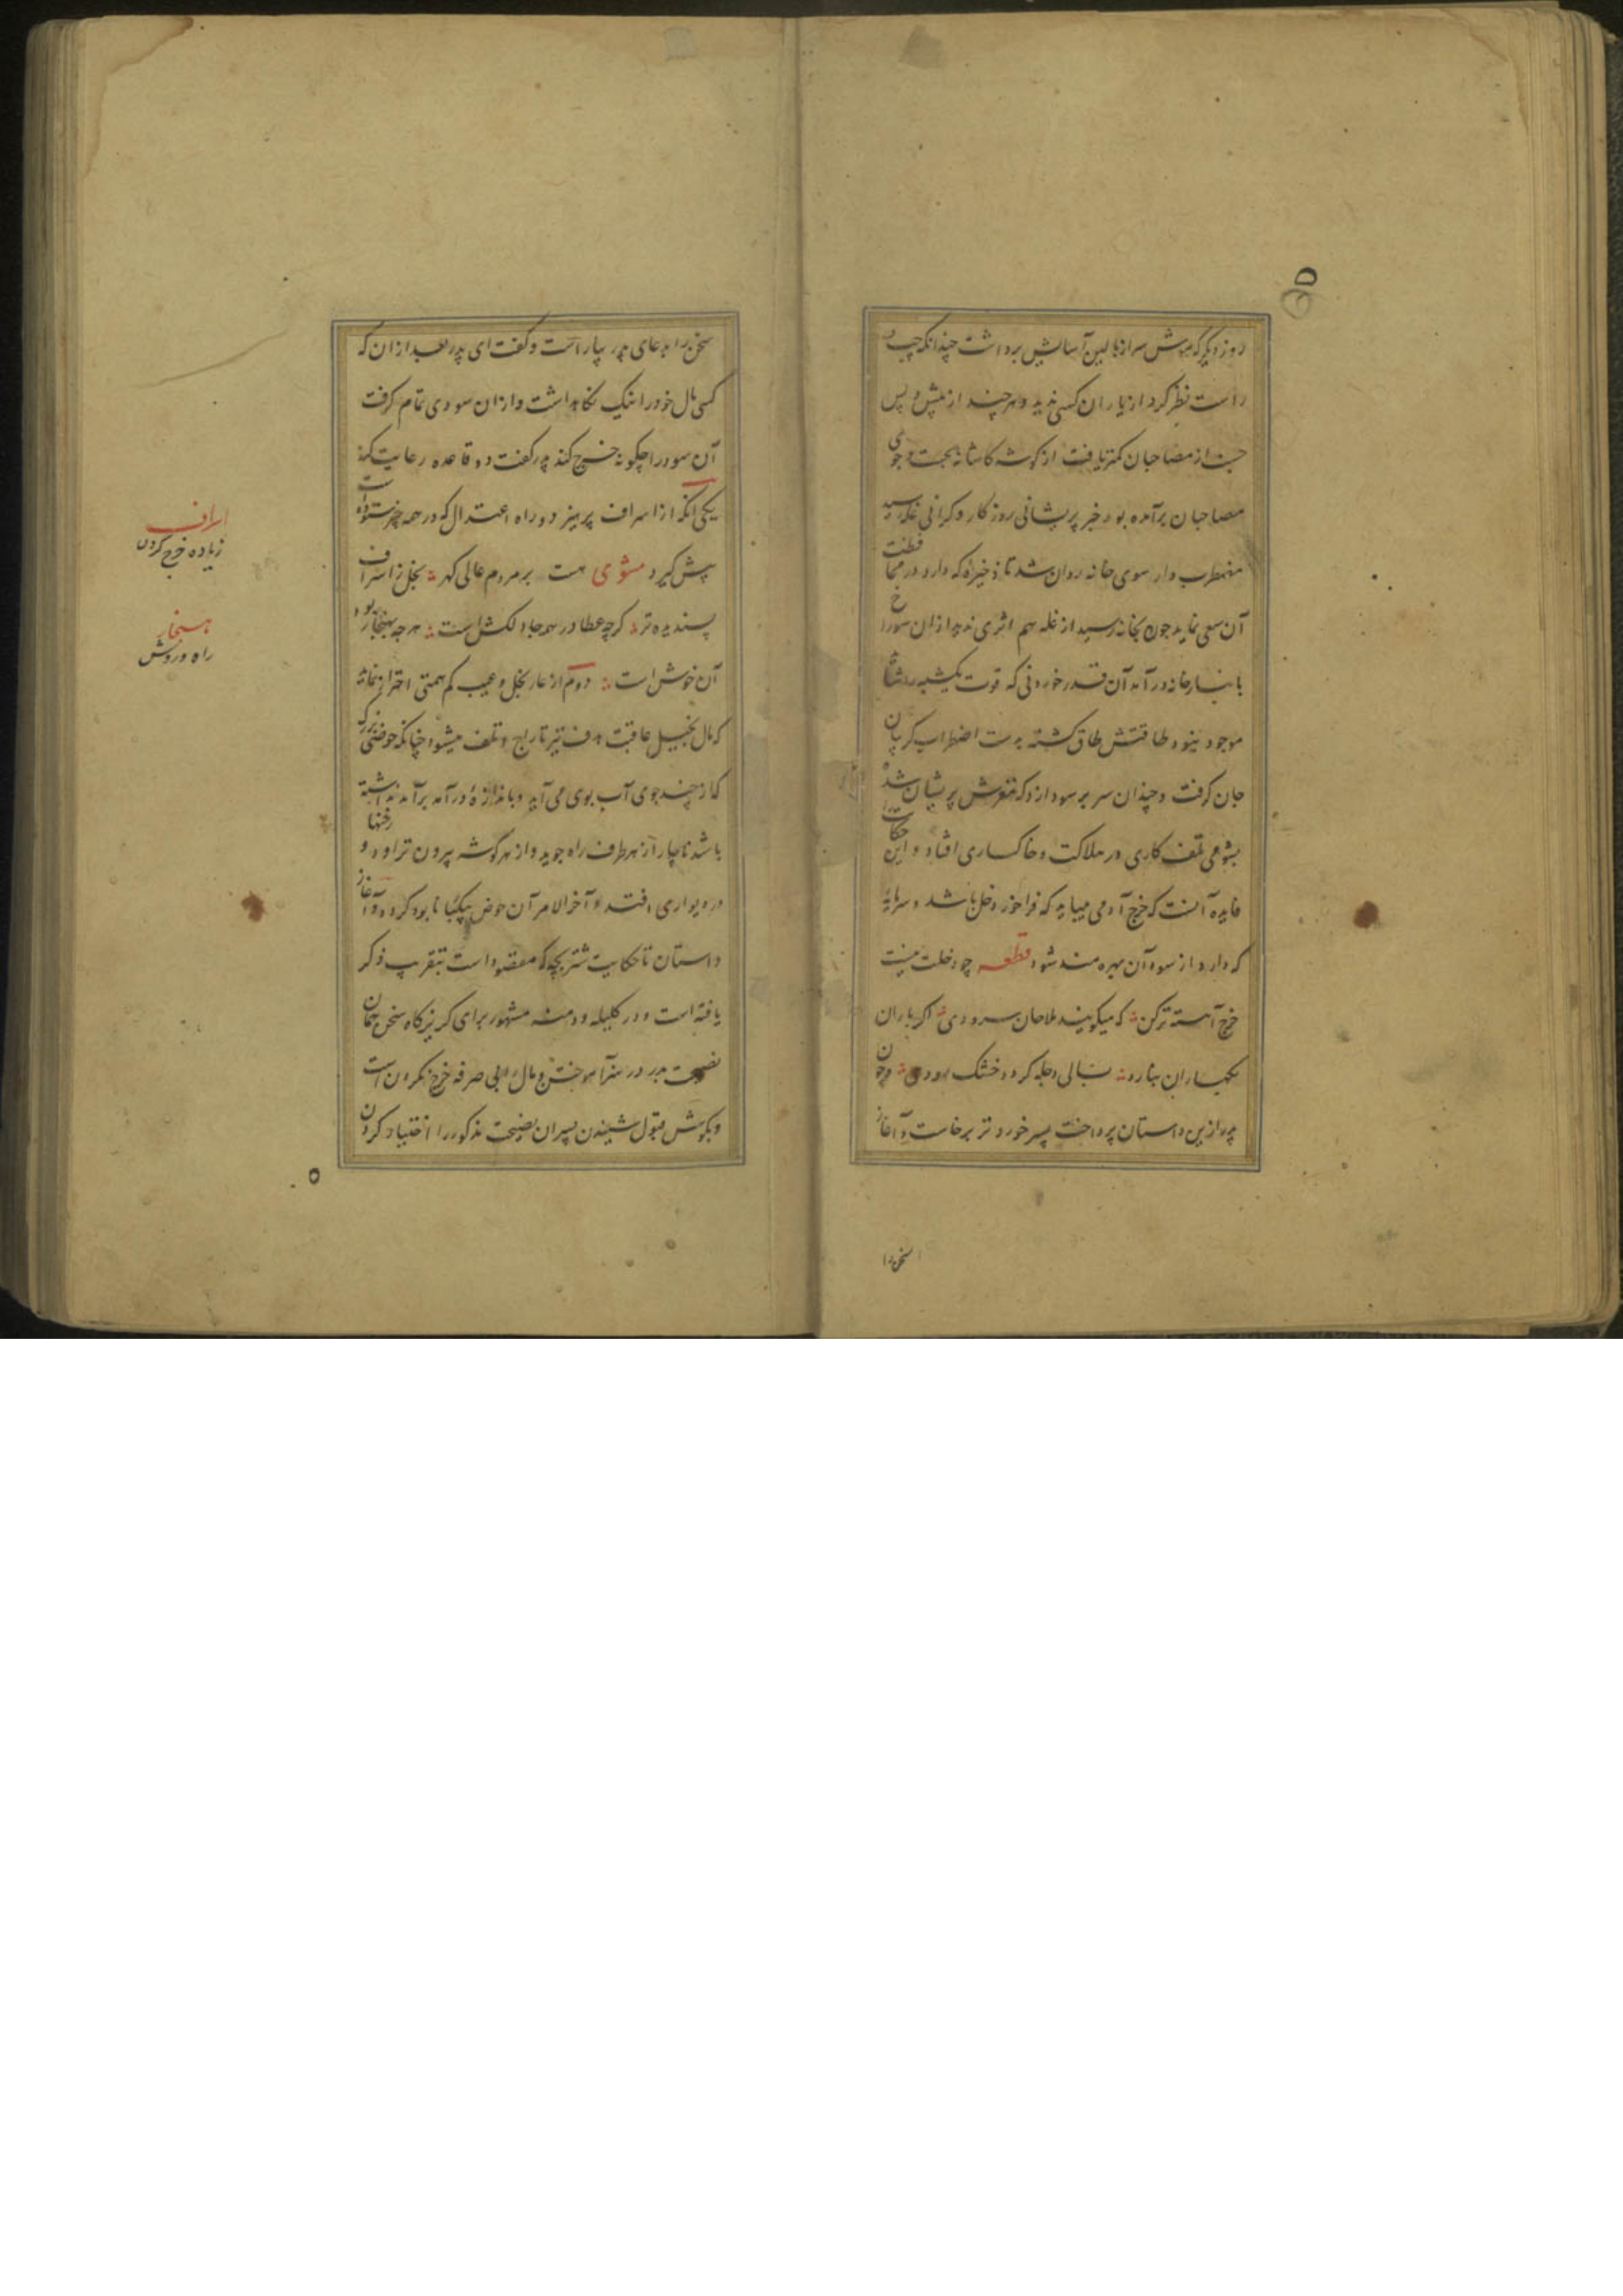 روز دیگر که موش سر از بالین آسایش برداشت چندانکه چپ و
راست نظر کرد از یاران کسی ندید و هر چند از پیش و پس
جست از مصاحبان کمتر یافت از گوشه کاشانه بجست و جوی
مصاحبان برآمده بود خبر پریشانی روزکار و کرانی غله رسید
مضطرب وار سوی خانه روان شد تا ذخیرهٔ که دارد در محافظت
آن سعی نماید چون بخانه رسید از غله هم اثری ندید از ان سوراخ
بانبارخانه درآمد آن قدر خوردنی که قوت یکشبه را شاید
موجود نبود طاقتش طاق کشته بدست اضطراب کریبان
جان کرفت و چندان سر بر سودا زد که مغزش پریشان شده
بشومی تلف کاری در هلاکت و خاکساری افتاد و این حکایت را
فایده آنست که خرج آدمی میباید که فراخور دخل باشد و سرمایهٔ
که دارد از سود آن بهره مند شود قطعه چو دخلت نیست
خرج آهسته تر کن که میکویند ملاحان سرودی اکر باران
بکهساران نبارد بسالی دجله کردد خشک رودی و چون
پدر ازین داستان پرداخت پسر خوردتر برخاست و آغاز
سخن را
سخن را بدعای پدر بیاراست و کفت ای پدر بعد از ان که
کسی مال خود را نیک نکاهداشت و ازان سودی تمام کرفت
آن سود را چکونه خرج کند پدر کفت دو قاعده رعایت کند
یکی آنکه از اسراف پرهیزد و راه اعتدال که در همه چیز ستوده است
پیش کیرد مثنوی هست بر مردم عالی کهر بخل ز اسراف
پسندیده تر کرچه عطا در همه جا دلکش است هر چه بهنجار بود
آن خوش است دوم از عار بخل و عیب کم همتی احتراز نماید
که مال بخیل عاقبت هدف تیر تاراج و تلف میشود چنانکه حوضی بزرک
که از چند جوی آب بوی می آید و باندازهٔ درآمد برآمد نداشته
باشد ناچار از هر طرف راه جوید و از هر کوشه بیرون تراود و رخنها
در دیواری افتد و آخر الامر آن حوض بیکبار نابود کردد و آغاز
داستان تا حکایت شتربچه که مقصود است بتقریب ذکر
یافته است و در کلیله و دمنه مشهور برای کریزکاه سخن همان
نصیحت پدر در هنر آموختن و مال را بی صرفه خرج نکردن است
و بکوش قبول شنیدن پسران نصیحت مذکور را اختیار کردن
اسراف
زیاده خرج کردن
هنجار
راه و روش